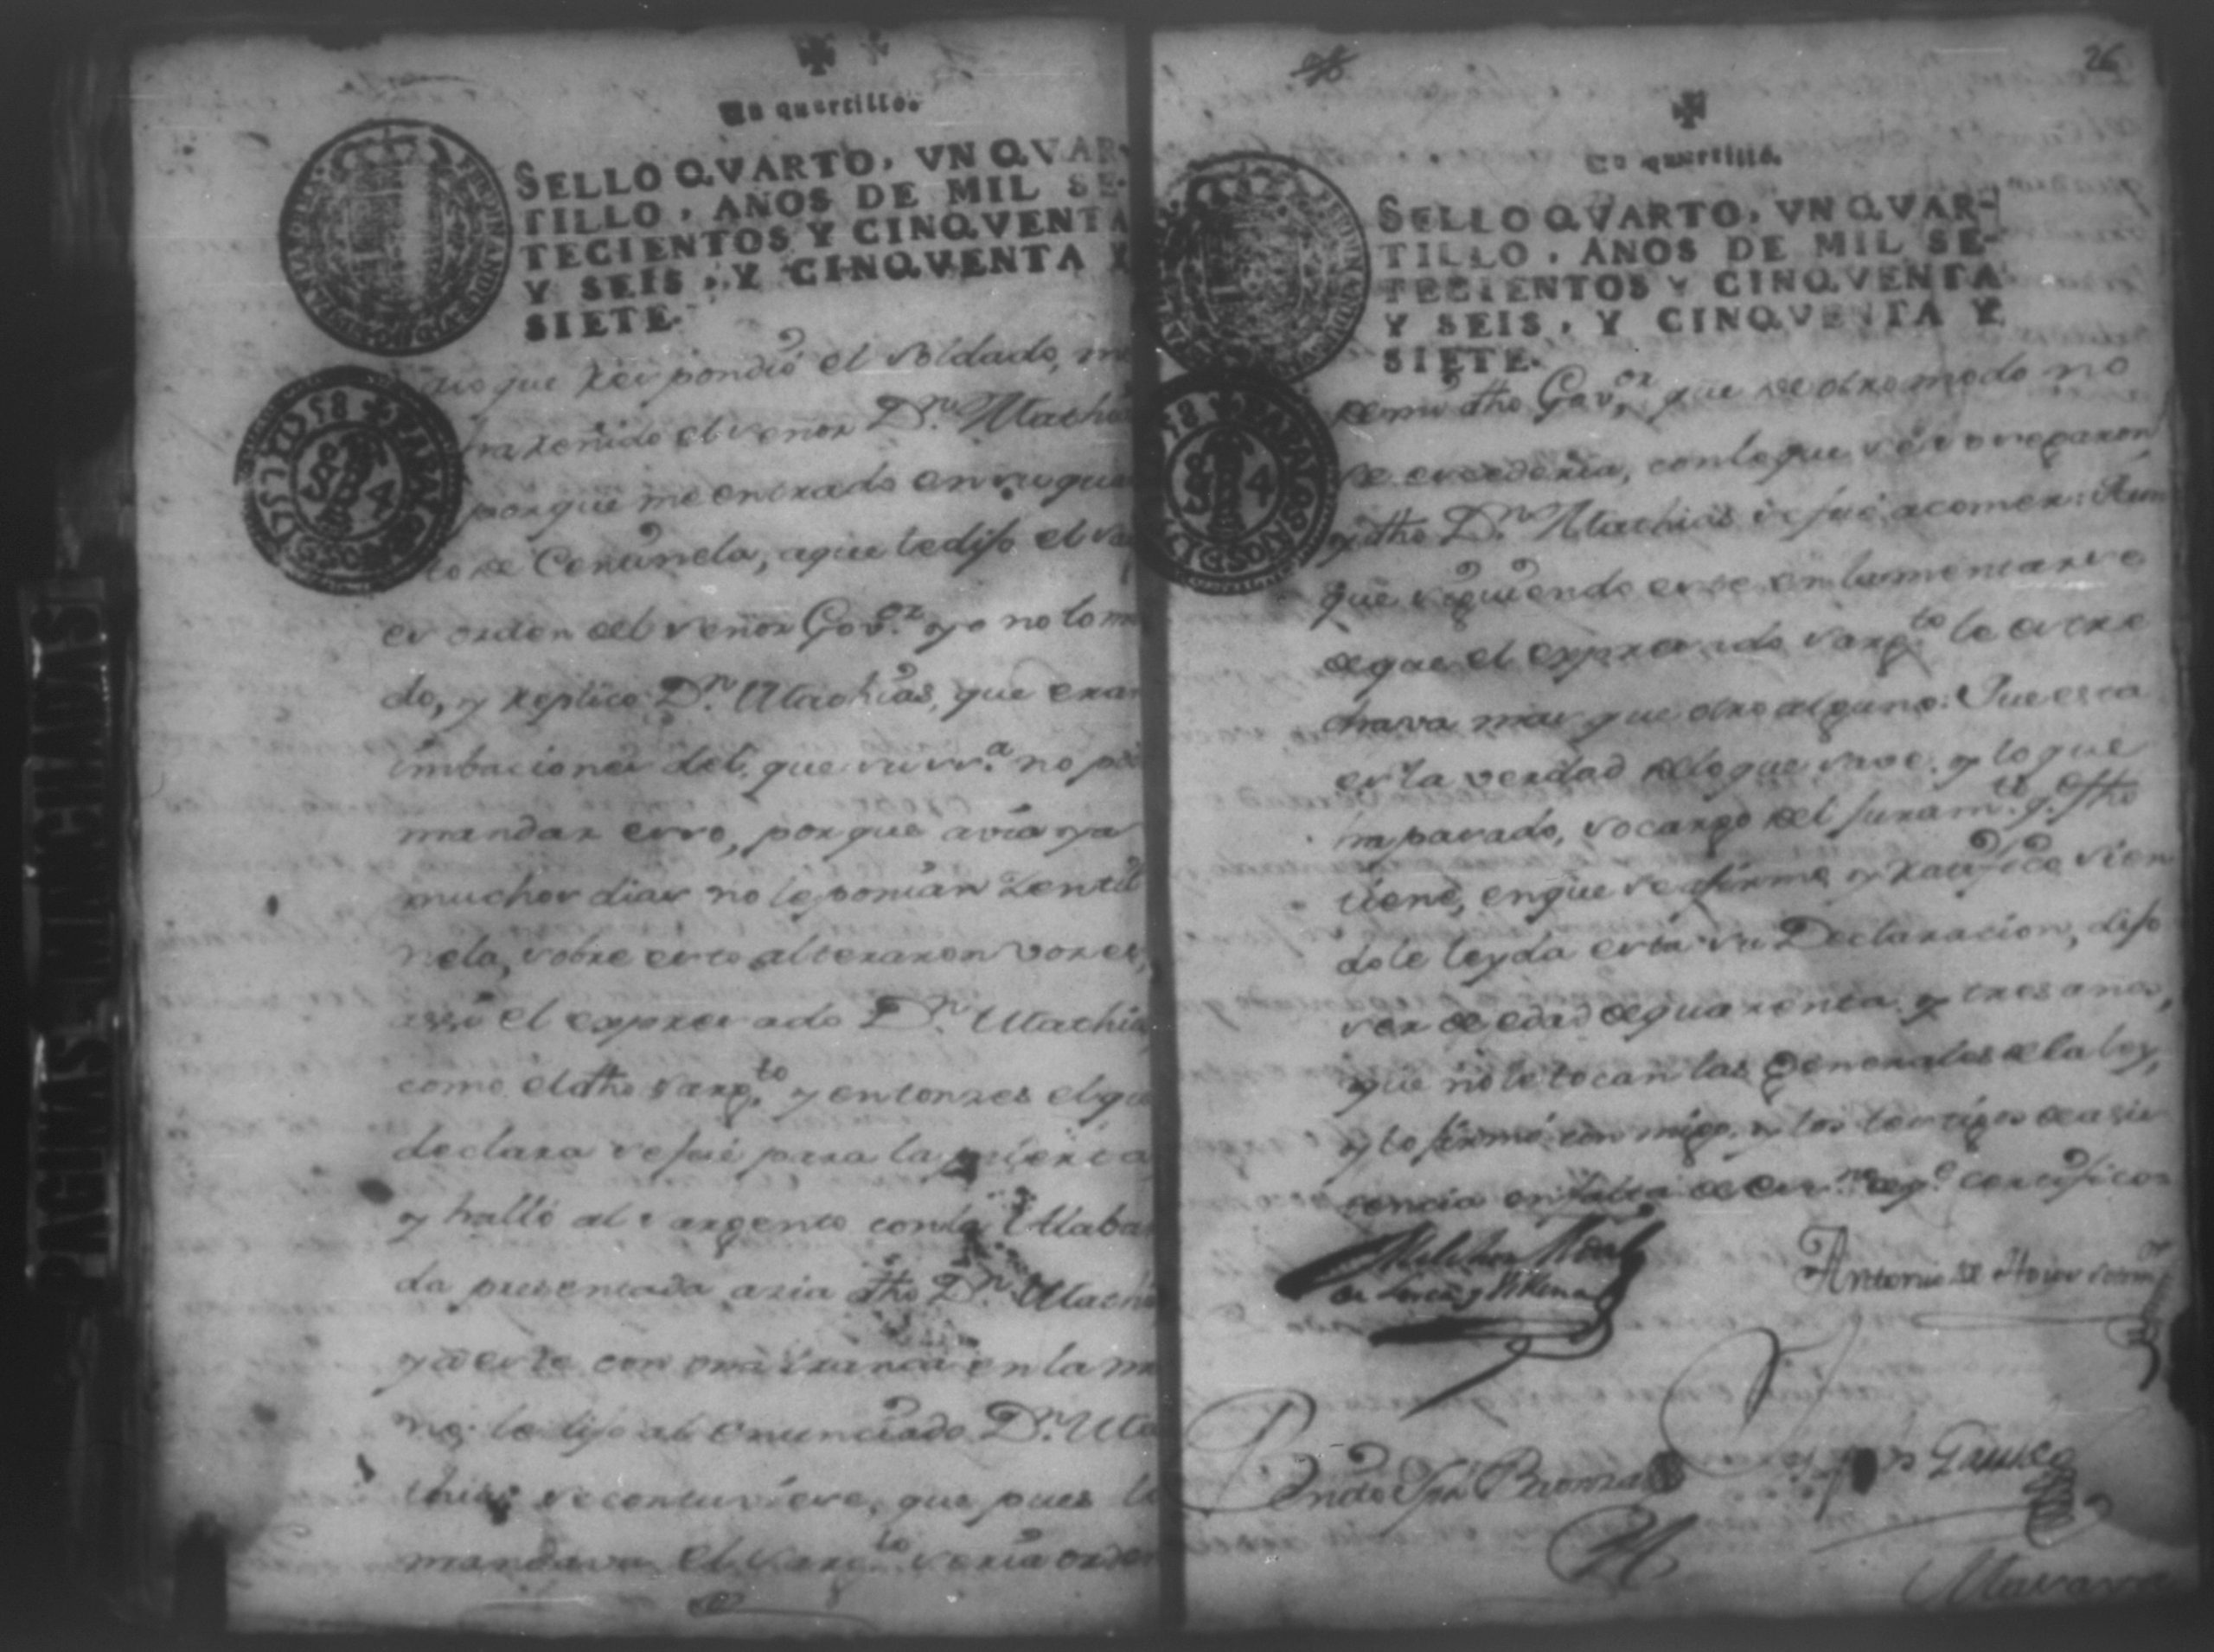 Un quartillo.
SELLO QVARTO, VN QVAR-
TILLO, AÑOS DE MIL SE-
TECIENTOS Y CINQVENTA
Y SEIS, Y CINQVENTA Y
SIETE.
que respondió el soldado, m
ha reñido el señor Dn. Mathi
porque me entrado en su qua
to de Centinela, aque le dijo el sa
es orden del señor Govor. yo no lo m
do, y replico Dn. Mathias, que eran
imbaciones del, que su srª. no po
mandar esso, porque avia ya
muchos dias no le ponian Zenti
nela, sobre esto alteraron vozes,
assi el expresado Dn. Mathia
como el dho sargto. y entonzes el q
declara se fué para la puerta
y halló al sargento con la Alabar
da presentada azia dho Dn. Mathi
y a este con una tranca en la m
no, le dijo al enunciado Dn. Ma
thias se contuviese, que pues lo
mandava el Sargto. seria orden
26
Un quartillo.
SELLO QVARTO, VN QVAR-
TILLO, AÑOS DE MIL SE-
TECIENTOS Y CINQVENTA
Y SEIS, Y CINQVENTA Y
SIETE.
de mi dho Govor. que de otro modo no
se excederia, con lo que se sosegaron,
y dho Dn. Mathias se fué a comer: Aun
que siguiendo este en lamentarse
de que el expresado sargto. le estre
chava mas que otro alguno: Que esta
es la verdad de lo que save, y lo que
ha pasado, so cargo del juramto. q. fho
tiene, en que se afirmó y ratificó sien
dole leyda esta su Declaracion, dijo
ser de edad de quarenta y tres años,
y que no le tocan las generales de la ley,
y lo firmó con migo, y los testigos de asis
tencia en falta de essno. de q. certifico
Melchor Vidal
de Lorca y Villena
Antonio de